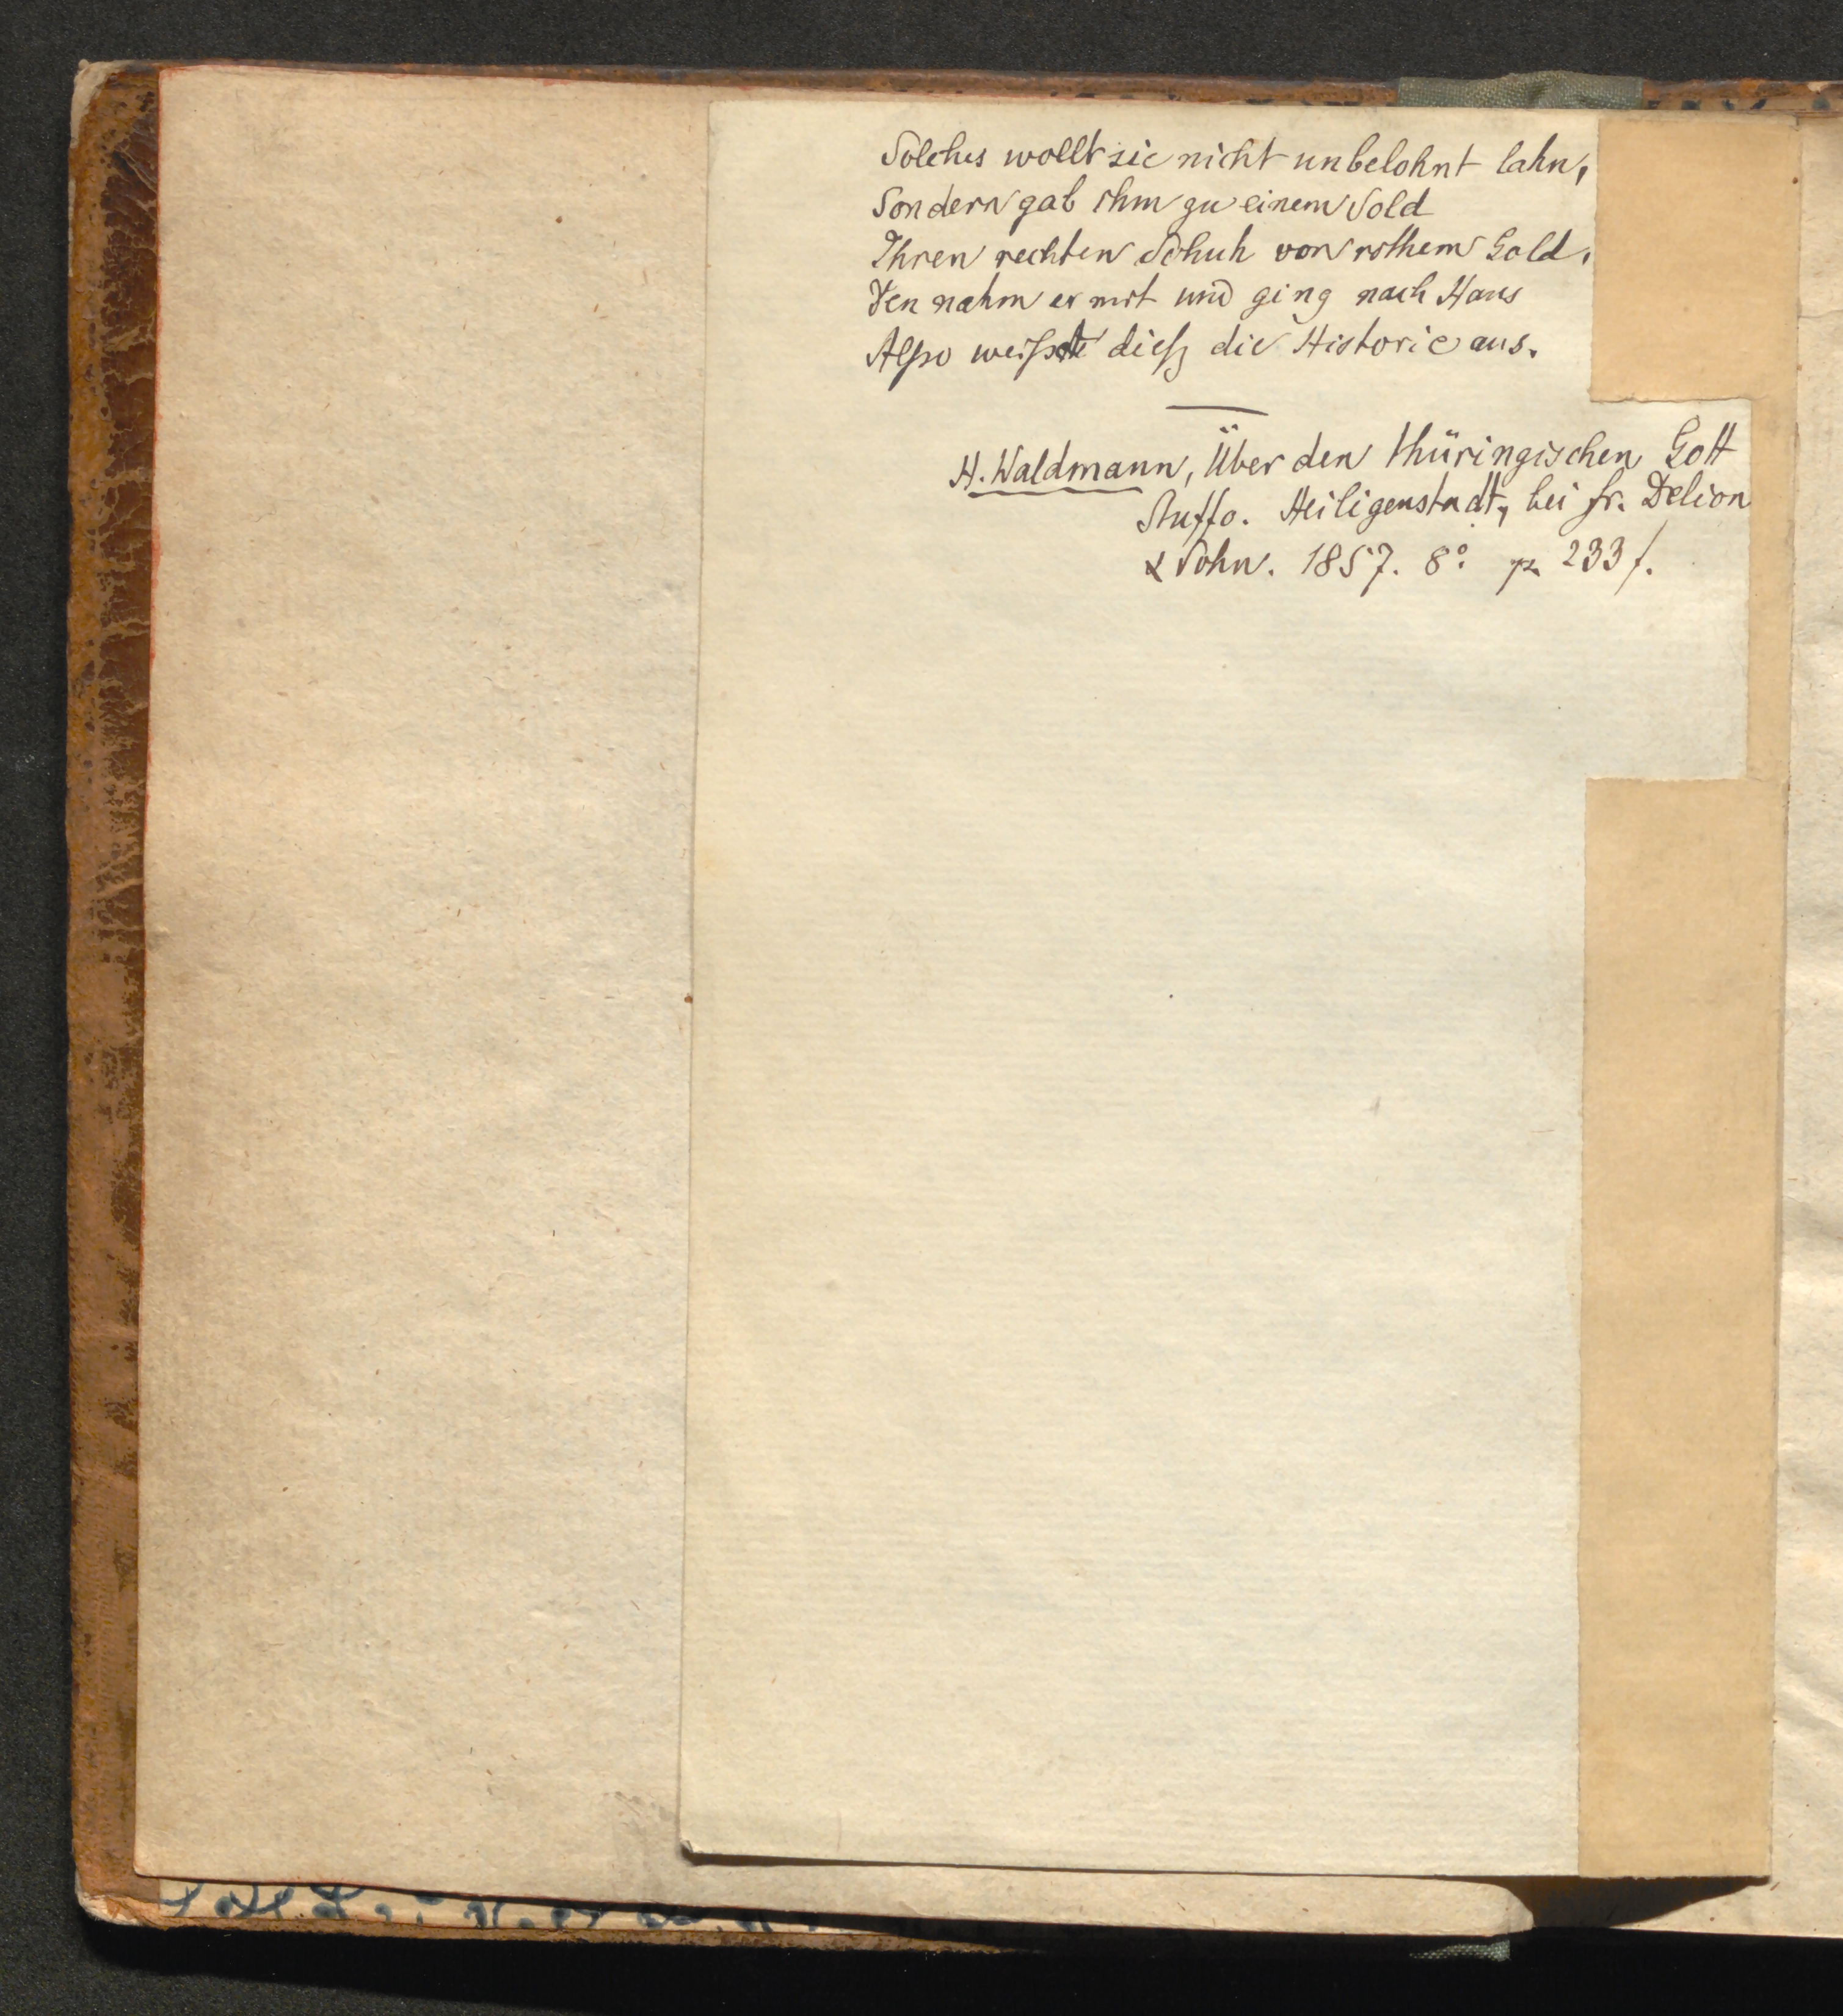 Solches wollt sie nicht unbelohnt lahn,
Sondern gab ihm zu einem Sold
Ihren rechten Schuh von rothem Gold,
Den nahm er mit und ging nach Haus
Alßo weiß dieß die Historie aus.
H. Waldmann, Über den thüringischen Gott
Stuffo. Heiligenstadt, bei Fr. Delion
& Sohn. 1857. 8° p. 233 f.